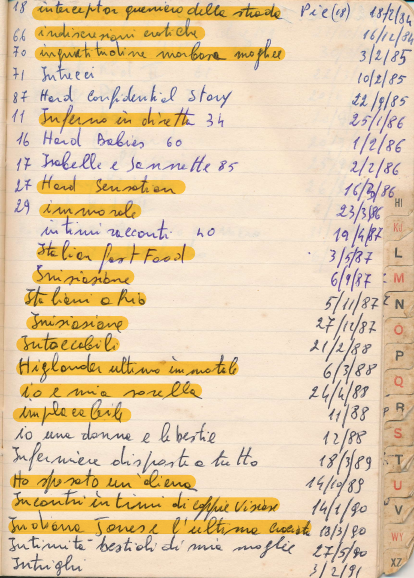 18 interceptor guerriero della strada Pic (18) 18/2/84
66 indiscrezioni erotiche 16/12/84
70 ingratitudine morbosa moglie 3/2/85
71 Intrecci 10/2/85
87 Hard Confidential Story 22/9/85
11 Inferno in diretta 34 25/1/86
16 Hard Babies 60 1/2/86
17 Isabelle e Jannette 85 2/2/86
27 Hard Sensation 16/3/86
29 immorale 23/3/86
intimi racconti 40 19/4/87
Italian fast Food 3/5/87
Iniziazione 6/9/87
Italiani a Rio 5/11/87
Inisiasione 27/12/87
Intoccabili 21/2/88
Higlander ultimo immortale 6/3/88
io e mia sorella 24/4/88
implacabile 11/88
io una donna e le bestie 12/88
Infermiere disposte a tutto 18/3/89
Ho sposato un'aliena 14/10/89
Incontri intimi di coppie viziose 14/1/90
Indiana Jones e l'ultima crociata 18/3/90
Intimità bestiali di mia moglie 27/5/90
Intrighi 3/2/91
HI
KJ
L
M
N
O
P
Q
R
S
T
U
V
WY
XZ